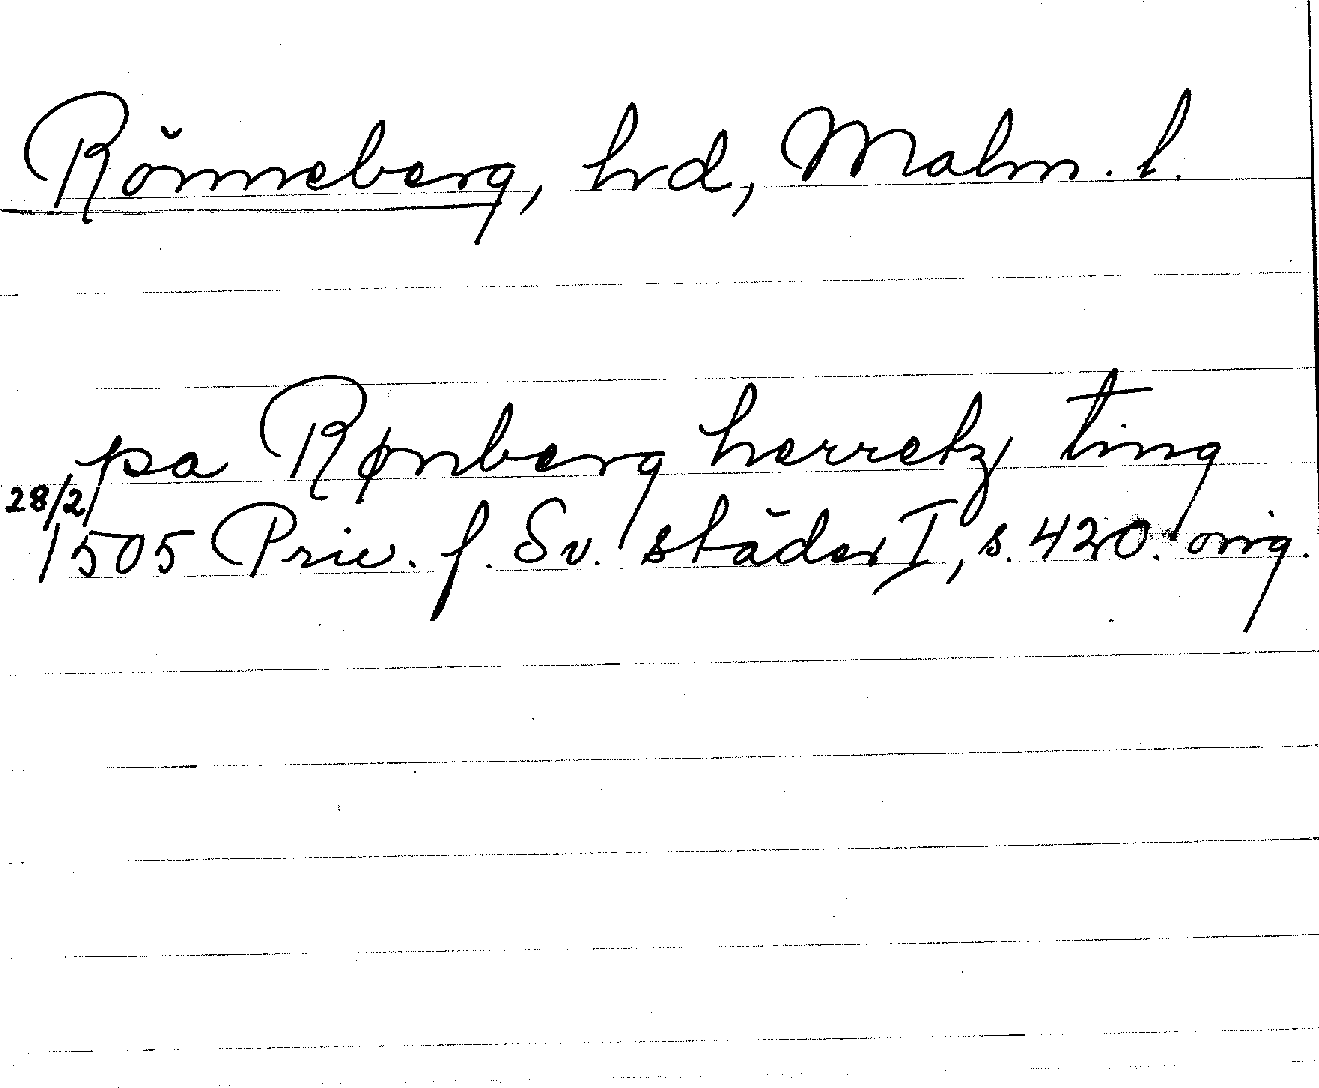 Rönneberg, hrd, Malm. l.
pa Rønberg herretz ting
28/2 1505 Priv. f. Sv. städer I, s. 420. orig.